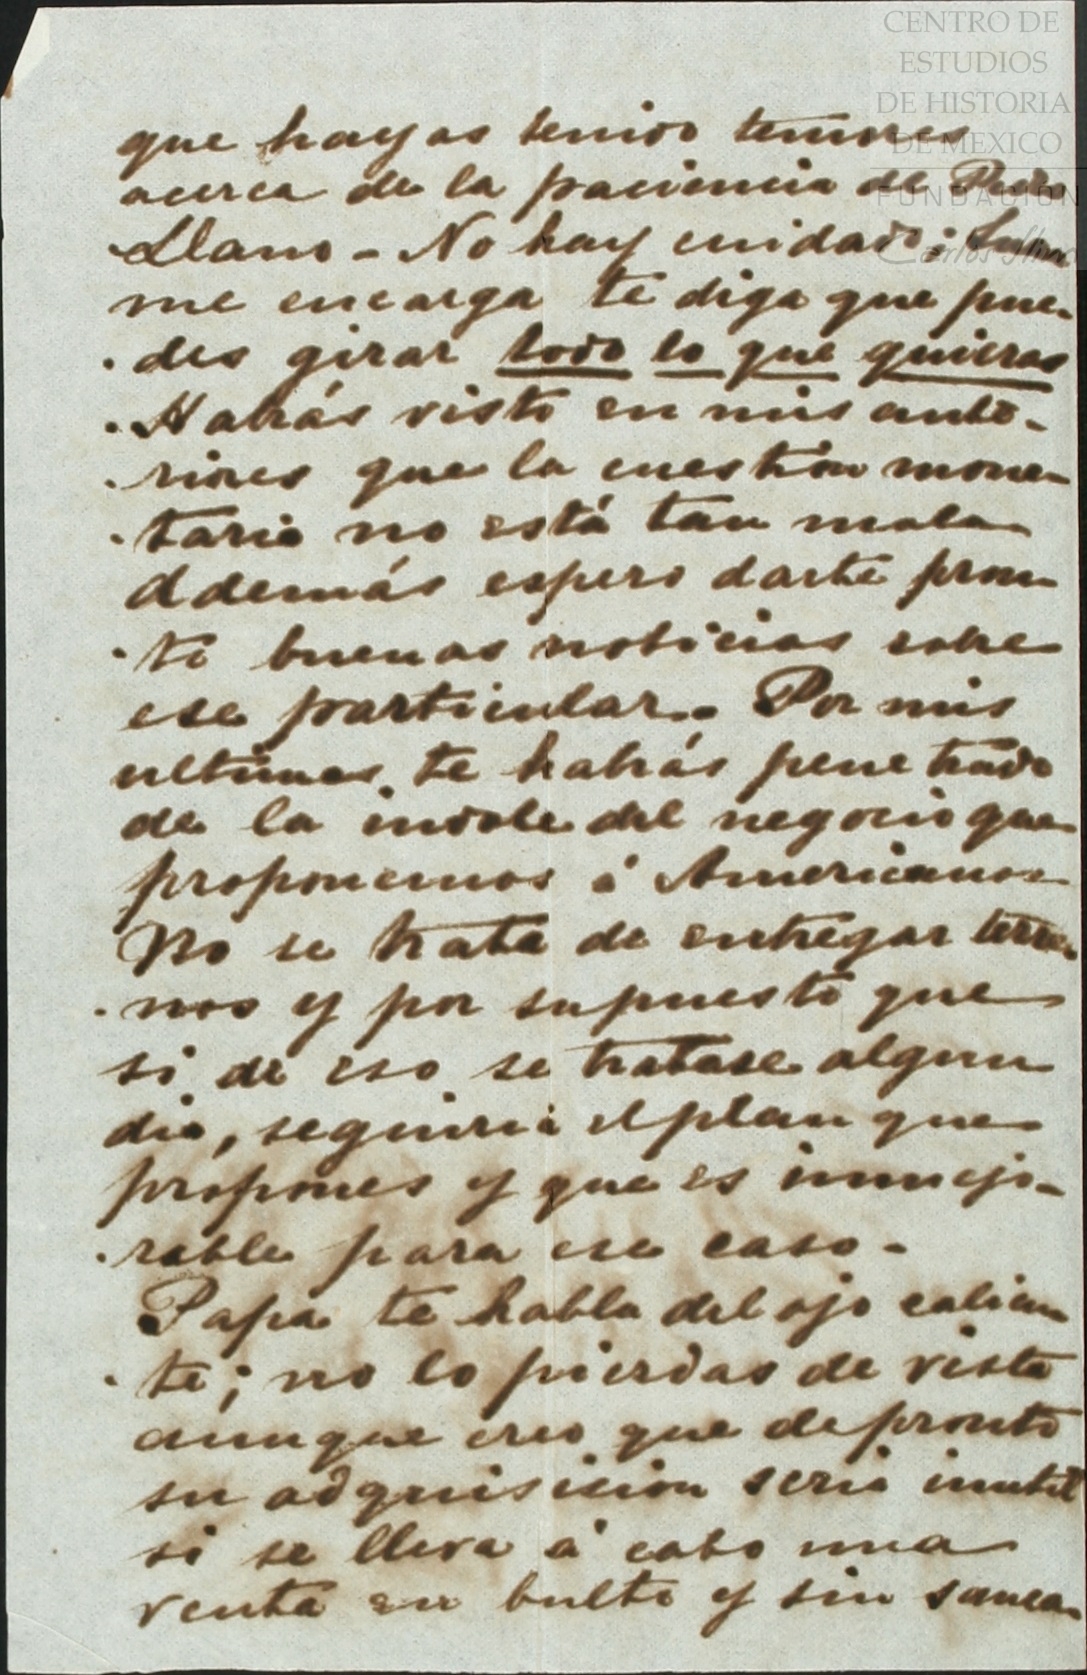 CENTRO DE
ESTUDIOS
DE HISTORIA
DE MEXICO
FUNDACIÓN
Carlos Slim
que hayas tenido temores
acerca de la paciencia de Pedro
Llano - No hay cuidado;
me encarga te diga que pue-
.des girar todo lo que quieras
.Habrás visto en mis ante-
.riores que la cuestion mone-
.taria no está tan mala
Además espero darte pron
.to buenas noticias sobre
ese particular. Por mis
ultimas te habrás penetrado
de la indole del negocio que
proponemos á Americanos
No se trata de entregar terre-
.nos y por supuesto que
si de eso se tratase algun
dia, seguiria el plan que
propones y que es inmejo-
.rable para ese caso -
Papa te habla del ojo calien
.te; no lo pierdas de vista
aunque creo que de pronto
su adquisicion seria inutil
si se lleva á cabo una
venta en bulto y sin sanea-